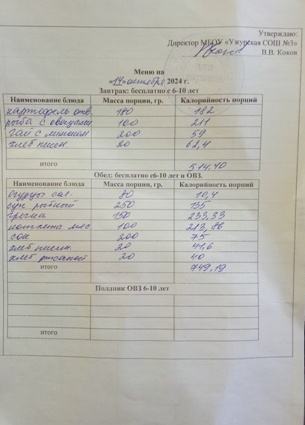 Утверждаю:
Директор МБОУ «Ужурская СОШ №3»
В.В. Коков
Меню на
«14» октября 2024 г.
Завтрак: бесплатно с 6-10 лет
Наименование блюда Масса порции, гр. Калорийность порций
картофель отв. 180 182
рыба с овощами 100 211
чай с лимоном 200 59
хлеб пшен 30 62,4
итого 514,40
Обед: бесплатно с6-10 лет и ОВЗ.
Наименование блюда Масса порции, гр. Калорийность порций
огурцы сол. 80 10,4
суп рыбный 250 135
гречка 150 233,33
котлета мяс 100 213,86
сок 200 75
хлеб пшен. 20 41,6
хлеб ржаной 20 40
итого 749,19
Полдник ОВЗ 6-10 лет
итого